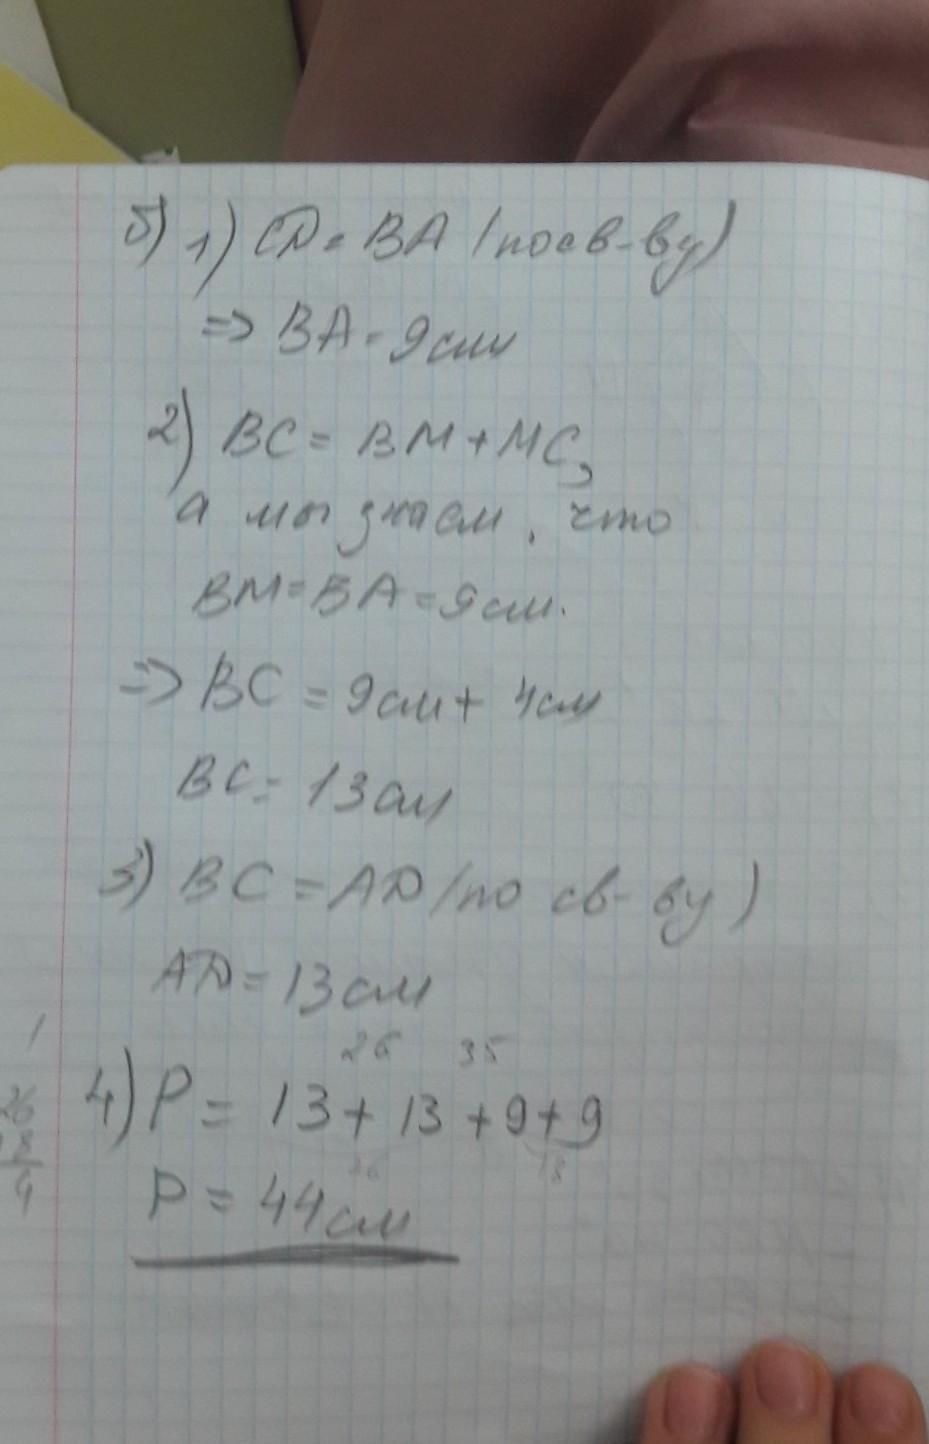 б) 1) CD = BA (по св-ву)
=> BA = 9см
2) BC = BM + MC,
а мы знаем, что
BM = BA = 9см.
=> BC = 9см + 4см
BC = 13см
3) BC = AD (по св-ву)
AD = 13см
26 35
4) P = 13 + 13 + 9 + 9
26 18
P = 44см
1
26
18
4